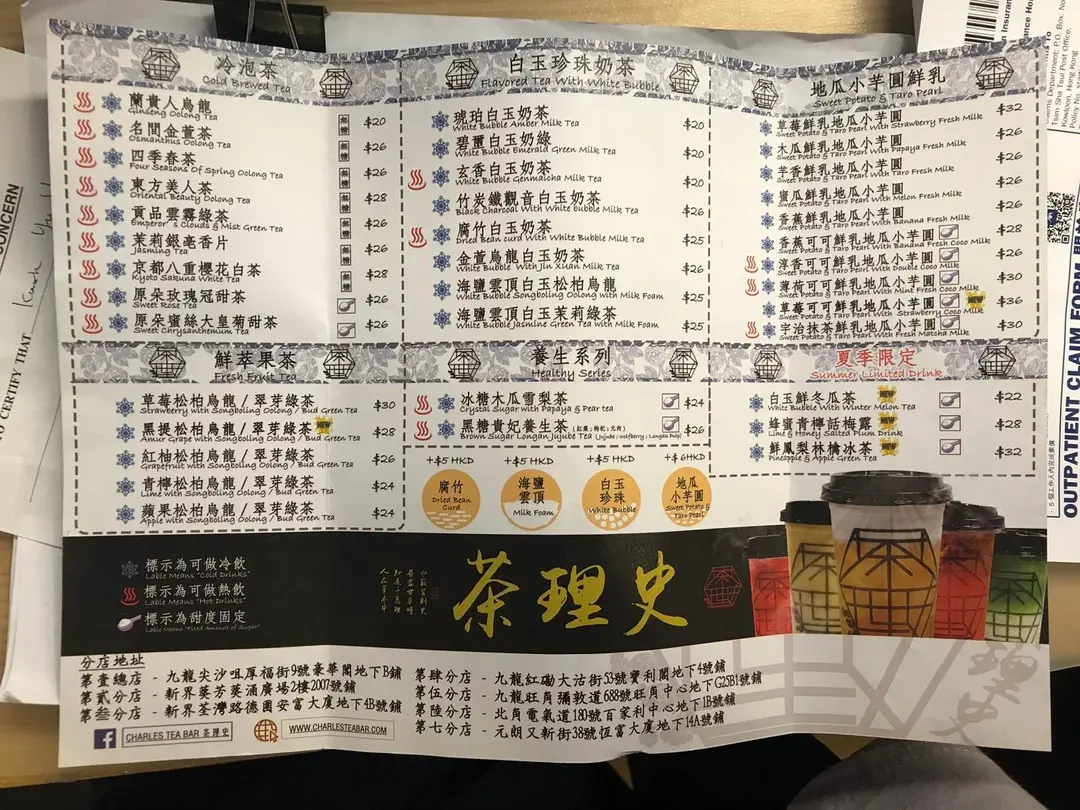 冷泡茶
Cold Brewed Tea
蘭貴人烏龍
Ginseng Oolong Tea
無糖
$20
名間金萱茶
Osmanthus Oolong Tea
無糖
$26
四季春茶
Four Seasons Of Spring Oolong Tea
無糖
$26
東方美人茶
Oriental Beauty Oolong Tea
無糖
$28
貢品雲霧綠茶
Emperor's Clouds & Mist Green Tea
無糖
$26
茉莉銀亳香片
Jasming Tea
無糖
$26
京都八重櫻花白茶
Kyoto Sakuna White Tea
無糖
$28
原朵玫瑰冠甜茶
Sweet Rose Tea
$26
原朵蜜絲大皇菊甜茶
Sweet Chrysanthemum Tea
$26
白玉珍珠奶茶
Flavored Tea With White Bubble
琥珀白玉奶茶
White Bubble Amber Milk Tea
$20
碧璽白玉奶綠
White Bubble Emerald Green Milk Tea
$20
玄香白玉奶茶
White Bubble Genmaicha Milk Tea
$20
竹炭鐵觀音白玉奶茶
Black Charcoal With White bubble Milk Tea
$26
腐竹白玉奶茶
Dried Bean curd With White Bubble Milk Tea
$25
金萱烏龍白玉奶茶
White Bubble With Jin Xuan Milk Tea
$26
海鹽雲頂白玉松柏烏龍
White Bubble Songboling Oolong with Milk Foam
$25
海鹽雲頂白玉茉莉綠茶
White Bubble Jasmine Green Tea with Milk Foam
$25
地瓜小芋圓鮮乳
Sweet Potato & Taro Pearl
$32
草莓鮮乳地瓜小芋圓
Sweet Potato & Taro Pearl With Strawberry Fresh Milk
$26
木瓜鮮乳地瓜小芋圓
Sweet Potato & Taro Pearl With Papaya Fresh Milk
$26
芋香鮮乳地瓜小芋圓
Sweet Potato & Taro Pearl With Taro Fresh Milk
$26
蜜瓜鮮乳地瓜小芋圓
Sweet Potato & Taro Pearl With Melon Fresh Milk
$26
香蕉鮮乳地瓜小芋圓
Sweet Potato & Taro Pearl With Banana Fresh Milk
$28
香蕉可可鮮乳地瓜小芋圓
Sweet Potato & Taro Pearl With Banana Fresh Coco Milk
$26
淳香可可鮮乳地瓜小芋圓
Sweet Potato & Taro Pearl With Double Coco Milk
$30
薄荷可可鮮乳地瓜小芋圓
Sweet Potato & Taro Pearl With Mint Fresh Coco Milk
$36
草莓可可鮮乳地瓜小芋圓
NEW
Sweet Potato & Taro Pearl With Strawberry Coco Milk
$30
宇治抹茶鮮乳地瓜小芋圓
Sweet Potato & Taro Pearl With Fresh Matcha Milk
鮮萃果茶
Fresh Fruit Tea
草莓松柏烏龍 / 翠芽綠茶
Strawberry with Songboling Oolong / Bud Green Tea
$30
黑提松柏烏龍 / 翠芽綠茶
NEW
Amur Grape with Songboling Oolong / Bud Green Tea
$28
紅柚松柏烏龍 / 翠芽綠茶
Grapefruit with Songboling Oolong / Bud Green Tea
$26
青檸松柏烏龍 / 翠芽綠茶
Lime with Songboling Oolong / Bud Green Tea
$24
蘋果松柏烏龍 / 翠芽綠茶
Apple with Songboling Oolong / Bud Green Tea
$24
養生系列
Healthy Series
冰糖木瓜雪梨茶
Crystal Sugar with Papaya & Pear tea
$24
黑糖貴妃養生茶 (紅棗;枸杞;元肉)
Brown Sugar Longan Jujube Tea (Jujube ; wolfberry ; Longan Pulp)
$26
+$5 HKD
腐竹
Dried Bean Curd
+$5 HKD
海鹽雲頂
Milk Foam
+$5 HKD
白玉珍珠
White Bubble
+$6HKD
地瓜小芋圓
Sweet Potato & Taro Pearl
夏季限定
Summer Limited Drink
白玉鮮冬瓜茶
NEW
White Bubble With Winter Melon Tea
$22
蜂蜜青檸話梅露
NEW
Lime & Honey Salted Plum Drink
$28
鮮鳳梨林檎冰茶
NEW
Pineapple & Apple Green Tea
$32
標示為可做冷飲
Lable Means "Cold Drinks"
標示為可做熱飲
Lable Means "Hot Drinks"
標示為甜度固定
Lable Means "Fixed Amount of Sugar"
茶理史
分店地址
第壹總店 - 九龍尖沙咀厚福街9號豪華閣地下B鋪
第貳分店 - 新界葵芳葵涌廣場2樓2007號鋪
第叁分店 - 新界荃灣路德圍安富大廈地下4B號鋪
第肆分店 - 九龍紅磡大沽街53號寶利閣地下4號鋪
第伍分店 - 九龍旺角彌敦道688號旺角中心地下G25B1號鋪
第陸分店 - 北角電氣道180號百家利中心地下1B號鋪
第七分店 - 元朗又新街38號恆富大廈地下14A號鋪
CHARLES TEA BAR 茶理史
WWW.CHARLESTEABAR.COM
理史
CONCERN
TO CERTIFY THAT
Claims Department: P.O. Box, No
Tsim Sha Tsui Post Office,
Kowloon, Hong Kong
Policy No.
OUTPATIENT CLAIM FORM